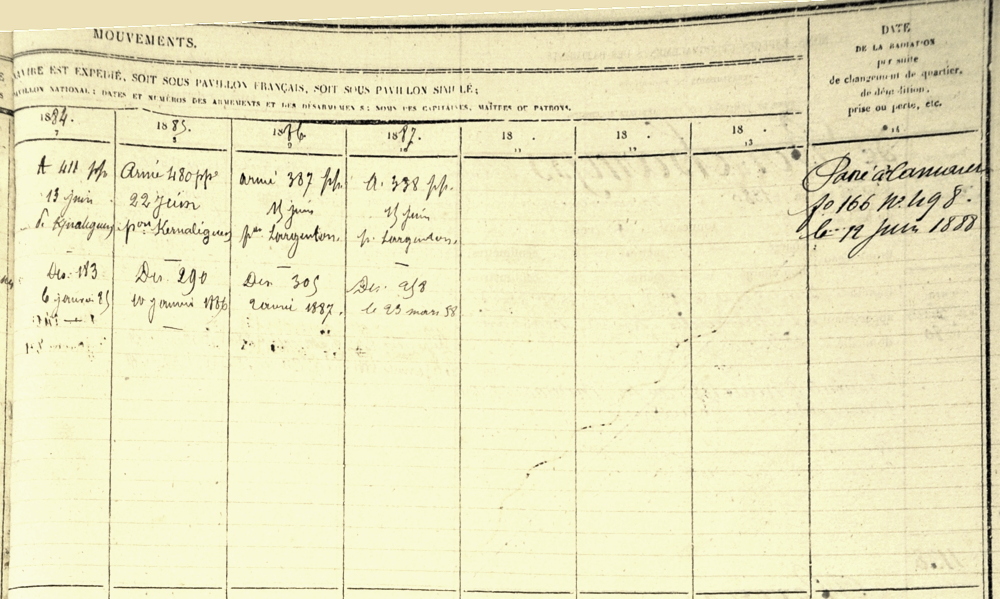 MOUVEMENTS.
NAVIRE EST EXPÉDIÉ, SOIT SOUS PAVILLON FRANÇAIS, SOIT SOUS PAVILLON SIMULÉ;
PAVILLON NATIONAL; DATES ET NUMÉROS DES ARMEMENTS ET DES DÉSARMEMENTS; NOMS DES CAPITAINES, MAÎTRES OU PATRONS.
1884.
7
A 411 pp.
13 juin
p. Kernaliguen
Des. 183
6 janvier 85
1885.
8
Armé 480 pp.
22 juin
pon Kernaliguen
Des. 290
10 janvier 1886
1886
9
armé 387 pp.
15 juin
pon Largenton.
Des. 305
2 1887.
1887.
10
A. 338 pp.
15 juin
p. Largenton.
Des. 958
le 23 mars 88
18 .
11
18 .
12
18 .
13
DATE
DE LA RADIATION
par suite
de changement de quartier,
de démolition,
prise ou perte, etc.
14
Passé à Camaret
fo 166 No 498.
le 12 Juin 1888